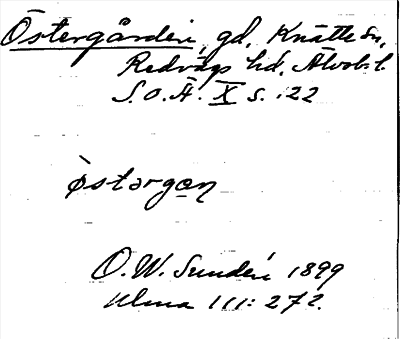 Östergården, gd, Knätte sn,
Redvägs hd, Älvsb. l.
S.O.Ä. X s. 122
òstərgan
O.W. Sundén 1899
Ulma 111: 272.